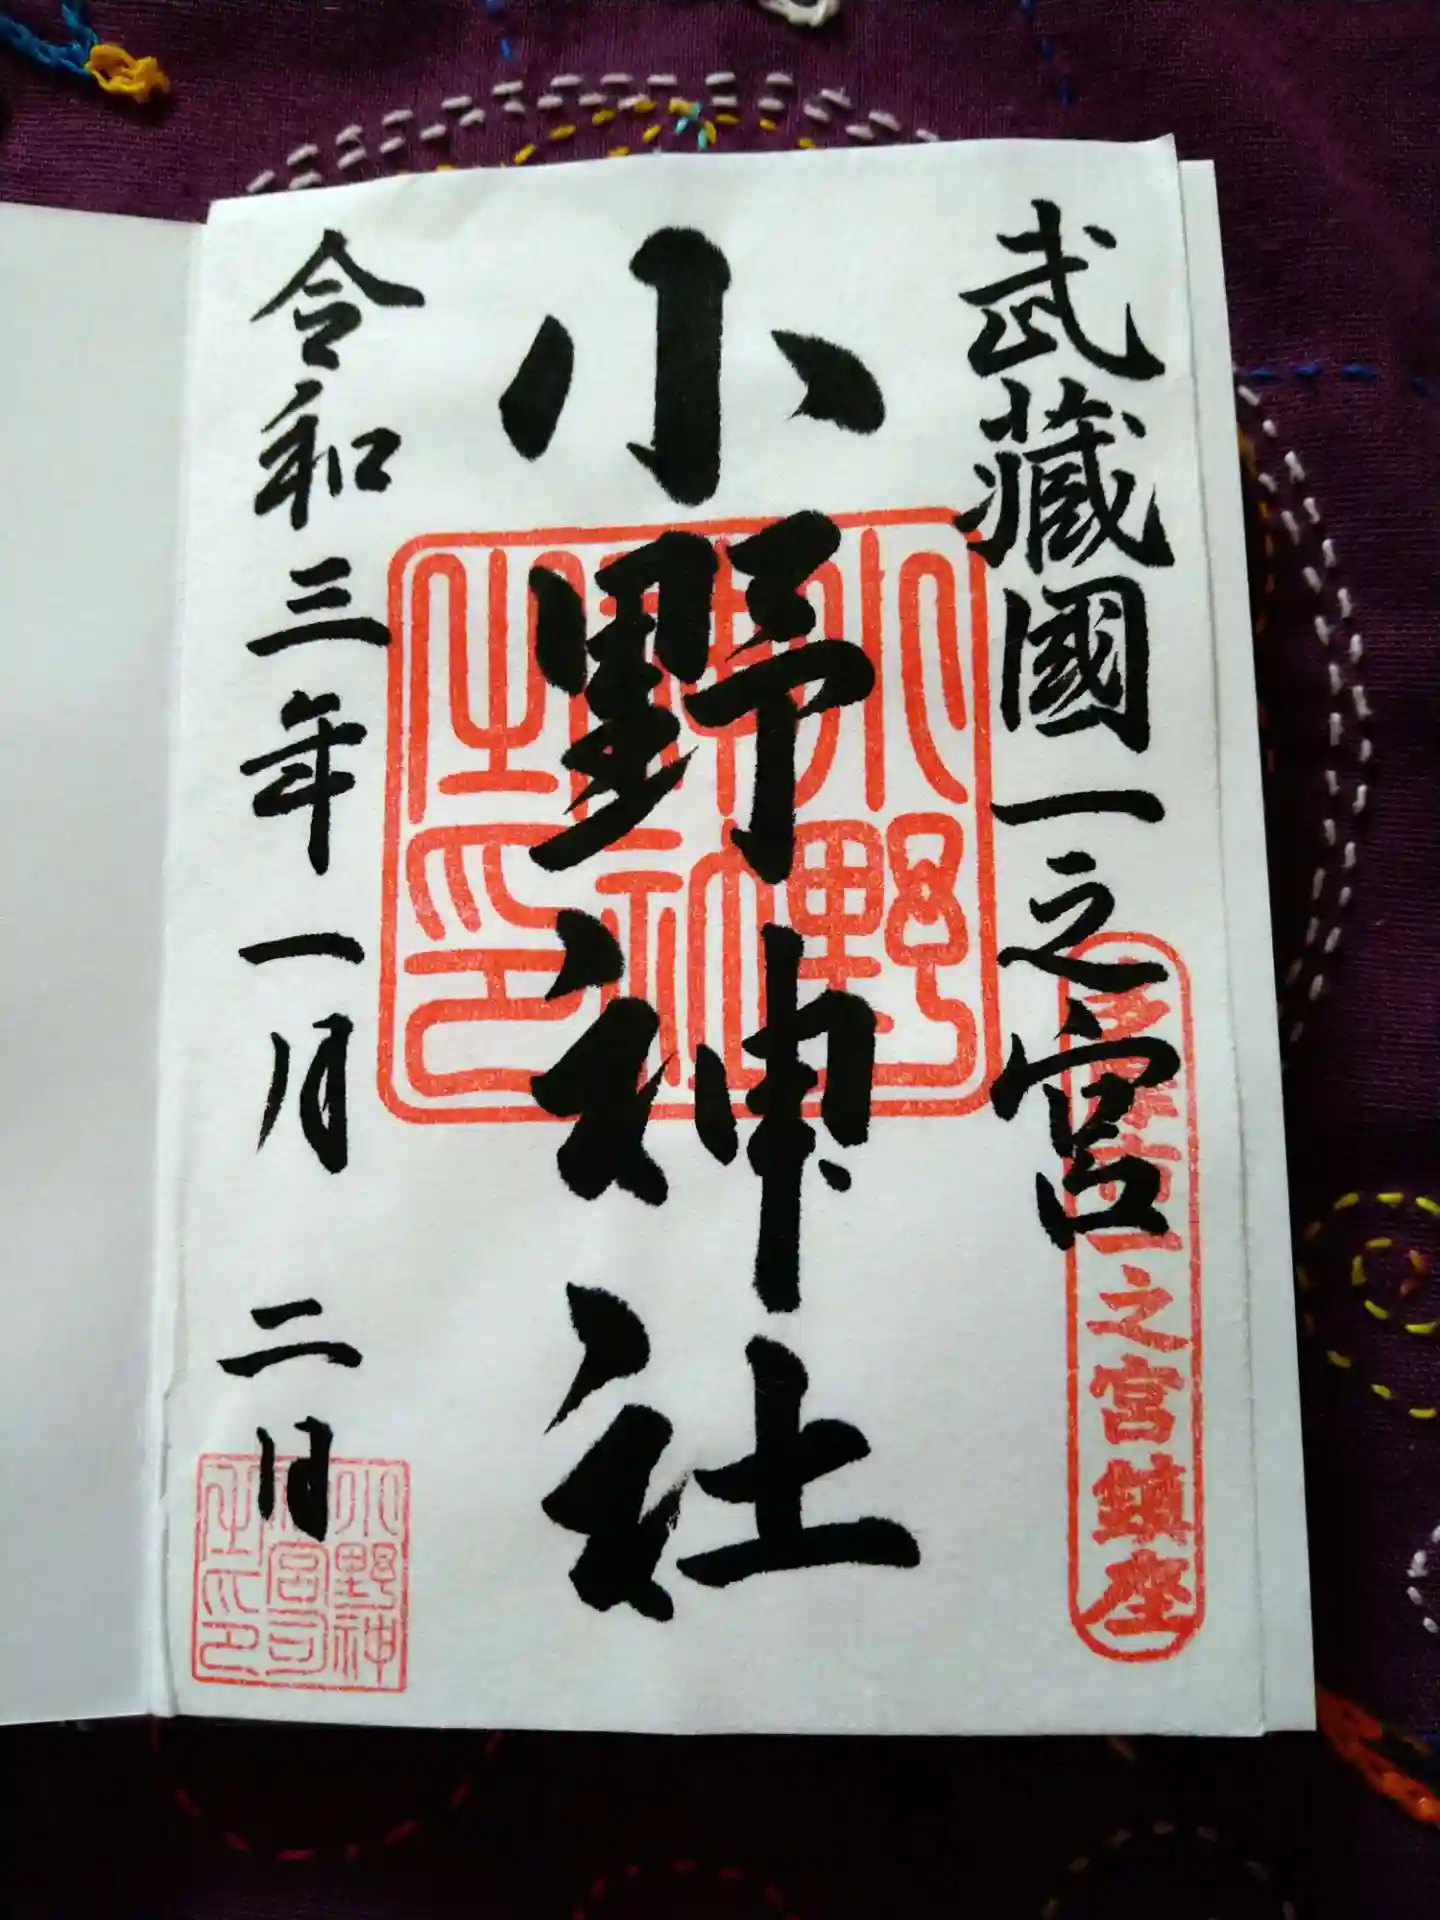 武藏國一之宮
一之宮鎮座
小野神社
小野神社之印
令和三年一月 二日
小野神社宮司之印